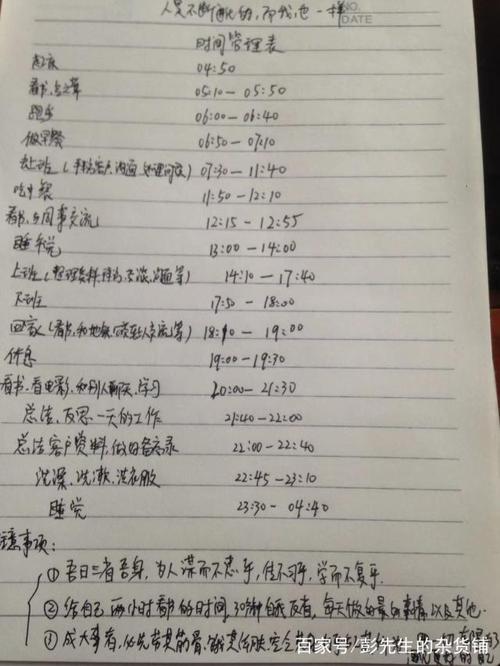 人是不断进化的,而我也一样
NO.
DATE
时间管理表
起床 04:50
看书, 05:10－05:50
跑步 06:00－06:40
做早餐 06:50－07:10
去上班(客户沟通,处理问题) 07:30－11:40
吃中餐 11:50－12:10
看书,与同事交流 12:15－12:55
睡午觉 13:00－14:00
上班(整理资料,沟通等) 14:10－17:40
下班 17:50－18:00
回家(看书,和地铁人交流等) 18:10－19:00
休息 19:00－19:30
看书.看电影,和别人聊天.学习 20:00－21:30
总结,反思一天的工作 21:40－22:00
总结客户资料,做好备忘录 22:00－22:40
洗澡,洗漱,洗衣服 22:45－23:10
睡觉 23:30－04:40
注意事项:
①吾日三省吾身,为人谋而不忠乎,信不习乎,学而不复乎.
②给自己两小时看书的时间,30分钟自我反省,每天做的最的事情以及其他.
③成大事者,必先苦其筋骨,
百家号/彭先生的杂货铺